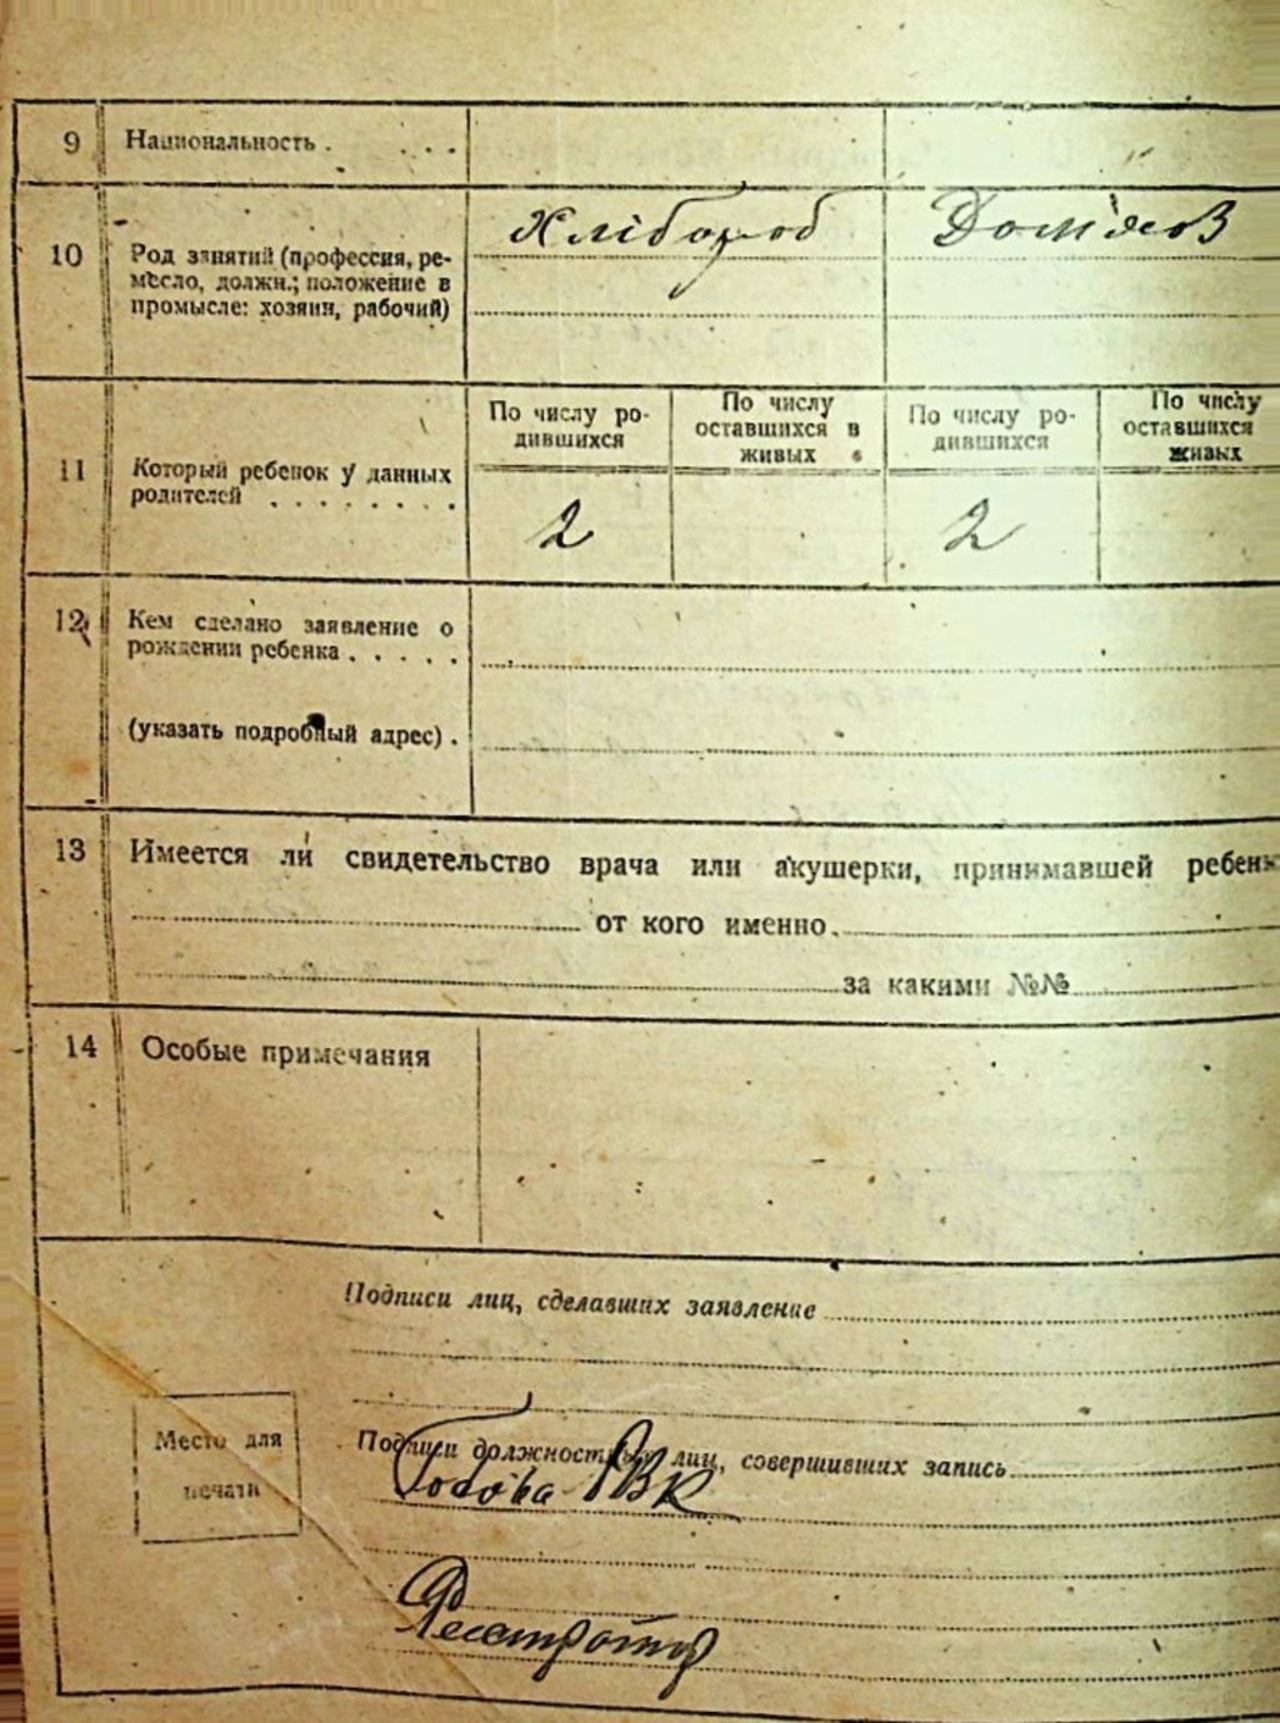 9 Национальность . . . .
Хлібороб Дом.
10 Род занятий (профессия, ре-
месло, должн.; положение в
промысле: хозяин, рабочий)
По числу ро-
дившихся
По числу
оставшихся в
живых
По числу ро-
дившихся
По числу
оставшихся
живых
11 Который ребенок у данных
родителей . . . . . . . .
2 2
12 Кем сделано заявление о
рождении ребенка . . . . .
(указать подробный адрес) .
13 Имеется ли свидетельство врача или акушерки, принимавшей ребен
от кого именно
за какими №№
14 Особые примечания
Подписи лиц, сделавших заявление
Место для
печати
Подписи должностных лиц, совершивших запись
Голова РВК
Реєстратор